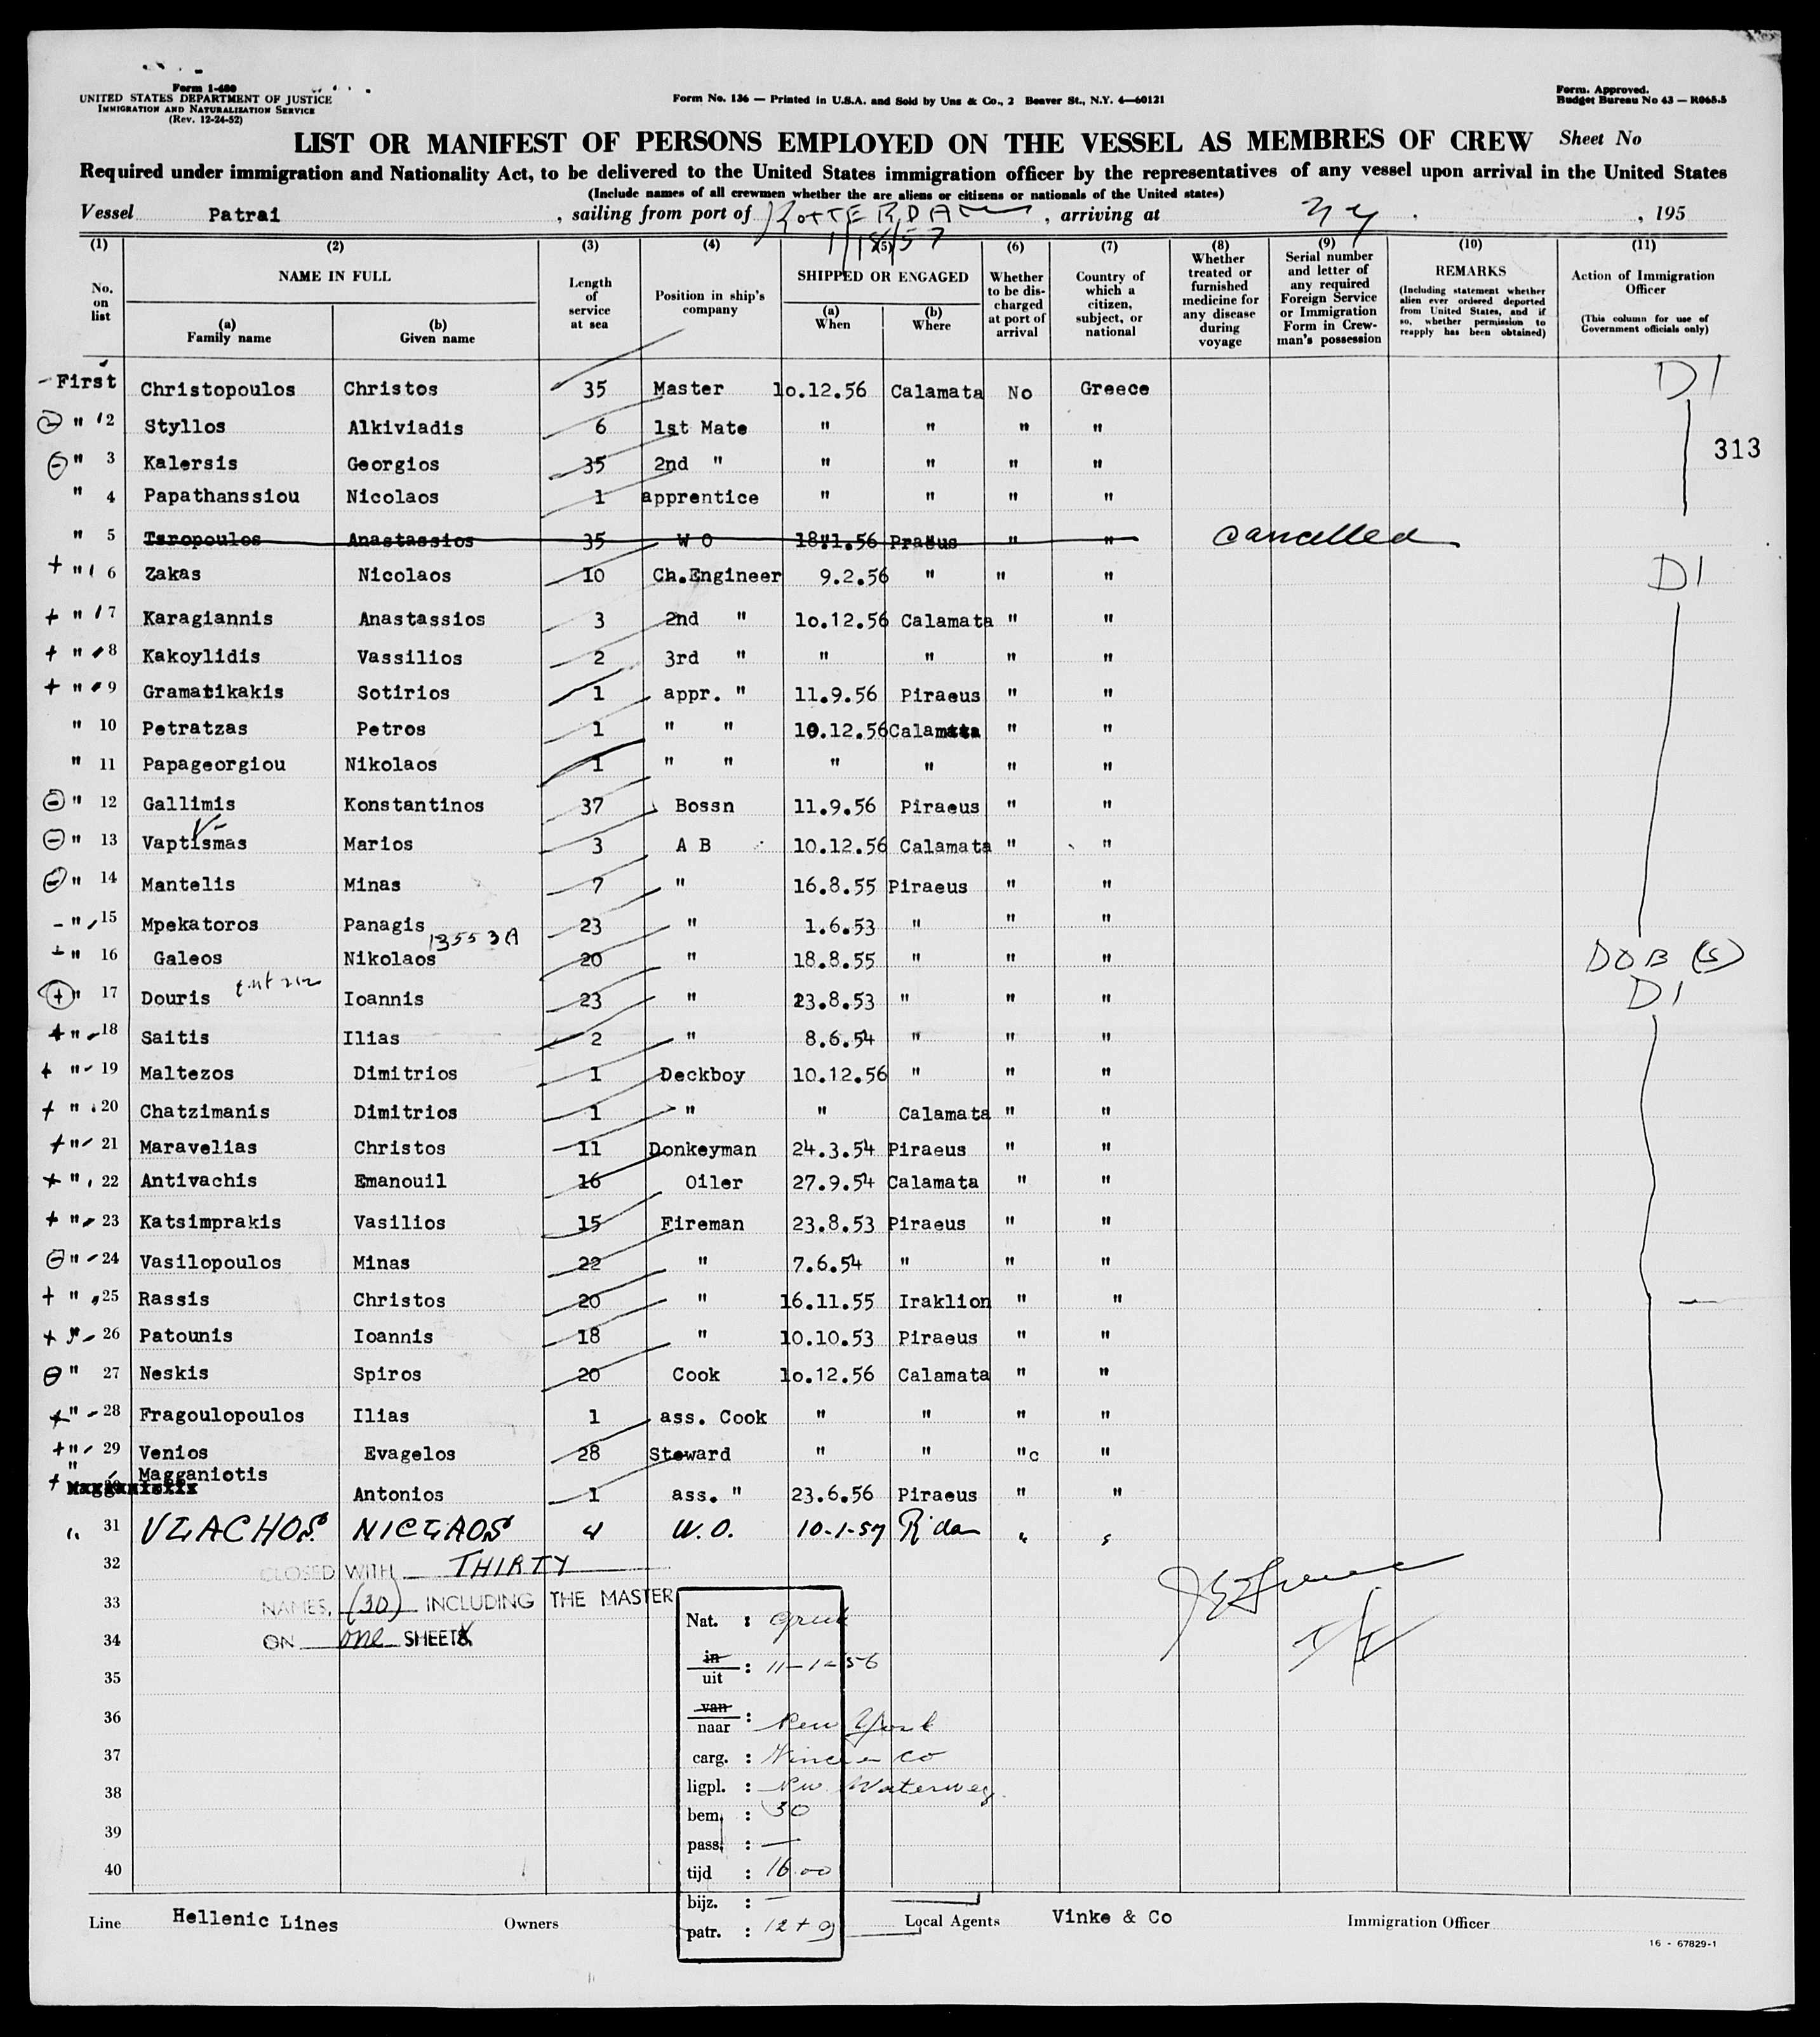 Form 1-480
UNITED STATES DEPARTMENT OF JUSTICE
IMMIGRATION AND NATURALIZATION SERVICE
(Rev. 12-24-52)
Form No. 136 — Printed in U.S.A. and Sold by Unz & Co., 2 Beaver St., N.Y. 4—60121
Form. Approved.
Budget Bureau No 43 — R065.5
LIST OR MANIFEST OF PERSONS EMPLOYED ON THE VESSEL AS MEMBRES OF CREW Sheet No
Required under immigration and Nationality Act, to be delivered to the United States immigration officer by the representatives of any vessel upon arrival in the United States
(Include names of all crewmen whether the are aliens or citizens or nationals of the United states)
Vessel Patrai , sailing from port of ROTTERDAM , arriving at NY , 195
1/18/57
(1) (2) (3) (4) (5) (6) (7) (8) (9) (10) (11)
No. on list
NAME IN FULL
(a) Family name
(b) Given name
Length of service at sea
Position in ship's company
SHIPPED OR ENGAGED
(a) When
(b) Where
Whether to be discharged at port of arrival
Country of which a citizen, subject, or national
Whether treated or furnished medicine for any disease during voyage
Serial number and letter of any required Foreign Service or Immigration Form in Crewman's possession
REMARKS
(Including statement whether alien ever ordered deported from United States, and if so, whether permission to reapply has been obtained)
Action of Immigration Officer
(This column for use of Government officials only)
First Christopoulos Christos 35 Master 1o.12.56 Calamata No Greece D1
" 2 Styllos Alkiviadis 6 1st Mate " " " "
313
" 3 Kalersis Georgios 35 2nd " " " " "
" 4 Papathanssiou Nicolaos 1 apprentice " " " "
" 5 Tsropoulos Anastassios 35 W O 18.1.56 Praeus " " cancelled
+ " 6 Zakas Nicolaos 10 Ch.Engineer 9.2.56 " " " D1
+ " 7 Karagiannis Anastassios 3 2nd " 1o.12.56 Calamata " "
+ " 8 Kakoylidis Vassilios 2 3rd " " " " "
+ " 9 Gramatikakis Sotirios 1 appr. " 11.9.56 Piraeus " "
" 10 Petratzas Petros 1 " " 10.12.56 Calamata " "
" 11 Papageorgiou Nikolaos 1 " " " " " "
" 12 Gallimis Konstantinos 37 Bossn 11.9.56 Piraeus " "
" 13 Vaptismas Marios 3 A B 10.12.56 Calamata " "
" 14 Mantelis Minas 7 " 16.8.55 Piraeus " "
- " 15 Mpekatoros Panagis 23 " 1.6.53 " " "
13553A
" 16 Galeos Nikolaos 20 " 18.8.55 " " " DOB (S)
+ " 17 Douris Ioannis 23 " 23.8.53 " " " D1
+ " 18 Saitis Ilias 2 " 8.6.54 " " "
+ " 19 Maltezos Dimitrios 1 Deckboy 10.12.56 " " "
+ " 20 Chatzimanis Dimitrios 1 " " Calamata " "
+ " 21 Maravelias Christos 11 Donkeyman 24.3.54 Piraeus " "
+ " 22 Antivachis Emanouil 16 Oiler 27.9.54 Calamata " "
+ " 23 Katsimprakis Vasilios 15 Fireman 23.8.53 Piraeus " "
" 24 Vasilopoulos Minas 22 " 7.6.54 " " "
+ " 25 Rassis Christos 20 " 16.11.55 Iraklion " "
+ " 26 Patounis Ioannis 18 " 10.10.53 Piraeus " "
" 27 Neskis Spiros 20 Cook 1o.12.56 Calamata " "
+ " 28 Fragoulopoulos Ilias 1 ass. Cook " " " "
+ " 29 Venios Evagelos 28 Steward " " "c "
+ " Magganiotis Antonios 1 ass. " 23.6.56 Piraeus " "
" 31 VLACHOS NICLAOS 4 W.O. 10-1-57 R'dam " "
32 CLOSED WITH THIRTY
33 NAMES, (30) INCLUDING THE MASTER
34 ON one SHEETS.
35
36
37
38
39
40
Nat. : Greek
in
uit : 11-1-56
van
naar : New York
carg. : Vinke & Co
ligpl. : New Waterweg
bem. : 30
pass. : —
tijd : 16.00
bijz. : —
patr. : 12 + 9
Line Hellenic Lines Owners Local Agents Vinke & Co Immigration Officer
16 - 67829-1